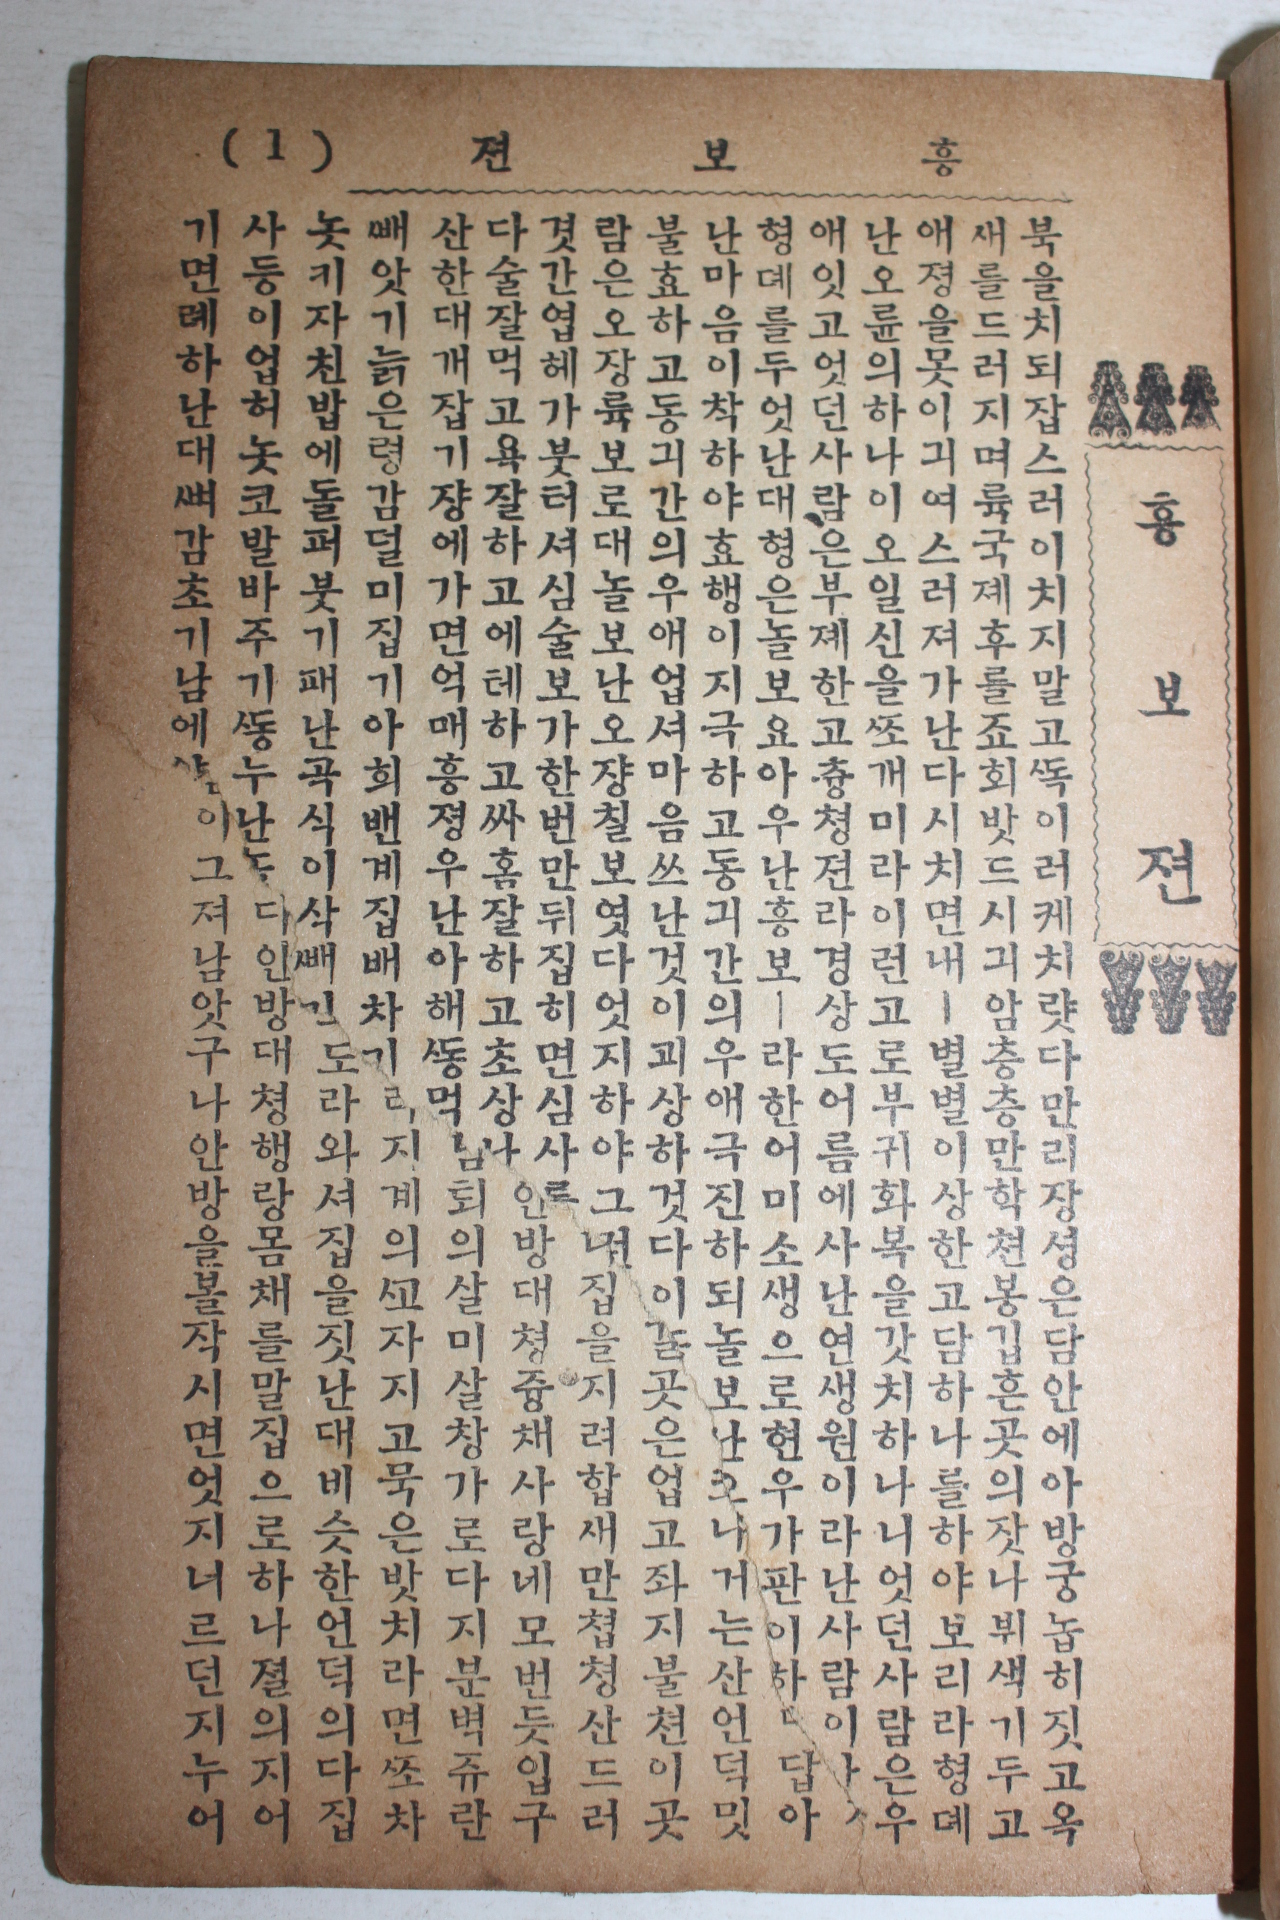 흥보젼 (1)
흥보젼
북을치되잡스러이치지말고ᄯᅩᆨ이러케치럇다만리장셩은담안에아방궁놉히짓고옥
새를드러지며륙국졔후를죠회밧드시긔암층층만학쳔봉깁흔곳의잣나뷔색기두고
애졍을못이긔여스러져가난다시치면내ㅣ별별이상한고담하나를하야보리라형뎨
난오륜의하나이오일신을ᄯᅩ개미라이런고로부귀화복을갓치하나니엇던사람은우
애잇고엇던사람은부졔한고츙쳥젼라경상도어름에사난연생원이라난사람이
형뎨를두엇난대형은놀보요아우난흥보ㅣ라한어미소생으로현우가판이하 답아
난마음이착하야효행이지극하고동긔간의우애극진하되놀보난 나거는산언덕밋
불효하고동긔간의우애업셔마음쓰난것이괴상하것다이 곳은업고좌지불쳔이곳
람은오장륙보로대놀보난오쟝칠보엿다엇지하야그 집을지려합새만쳡쳥산드러
겻간엽헤가붓터셔심술보가한번만뒤집히면심사 안방대쳥즁채사랑네모번듯입구
다술잘먹고욕잘하고에테하고싸홈잘하고초상나 퇴의살미살창가로다지분벽쥬란
산한대개잡기쟝에가면억매흥졍우난아해ᄯᅩᆼ먹 지계의ᄭᅩ자지고묵은밧치라면ᄯᅩ차
빼앗기늙은령감덜미집기아희밴계집배차기 도라와셔집을짓난대비슷한언덕의다집
놋키자친밥에돌퍼붓기패난곡식이삭빼기 방대쳥행랑몸채를말집으로하나졀의지어
사둥이업허놋코발바주기ᄯᅩᆼ누난 디인
기면례하난대뼈감초기남에 이그져남앗구나안방을볼작시면엇지너르던지누어